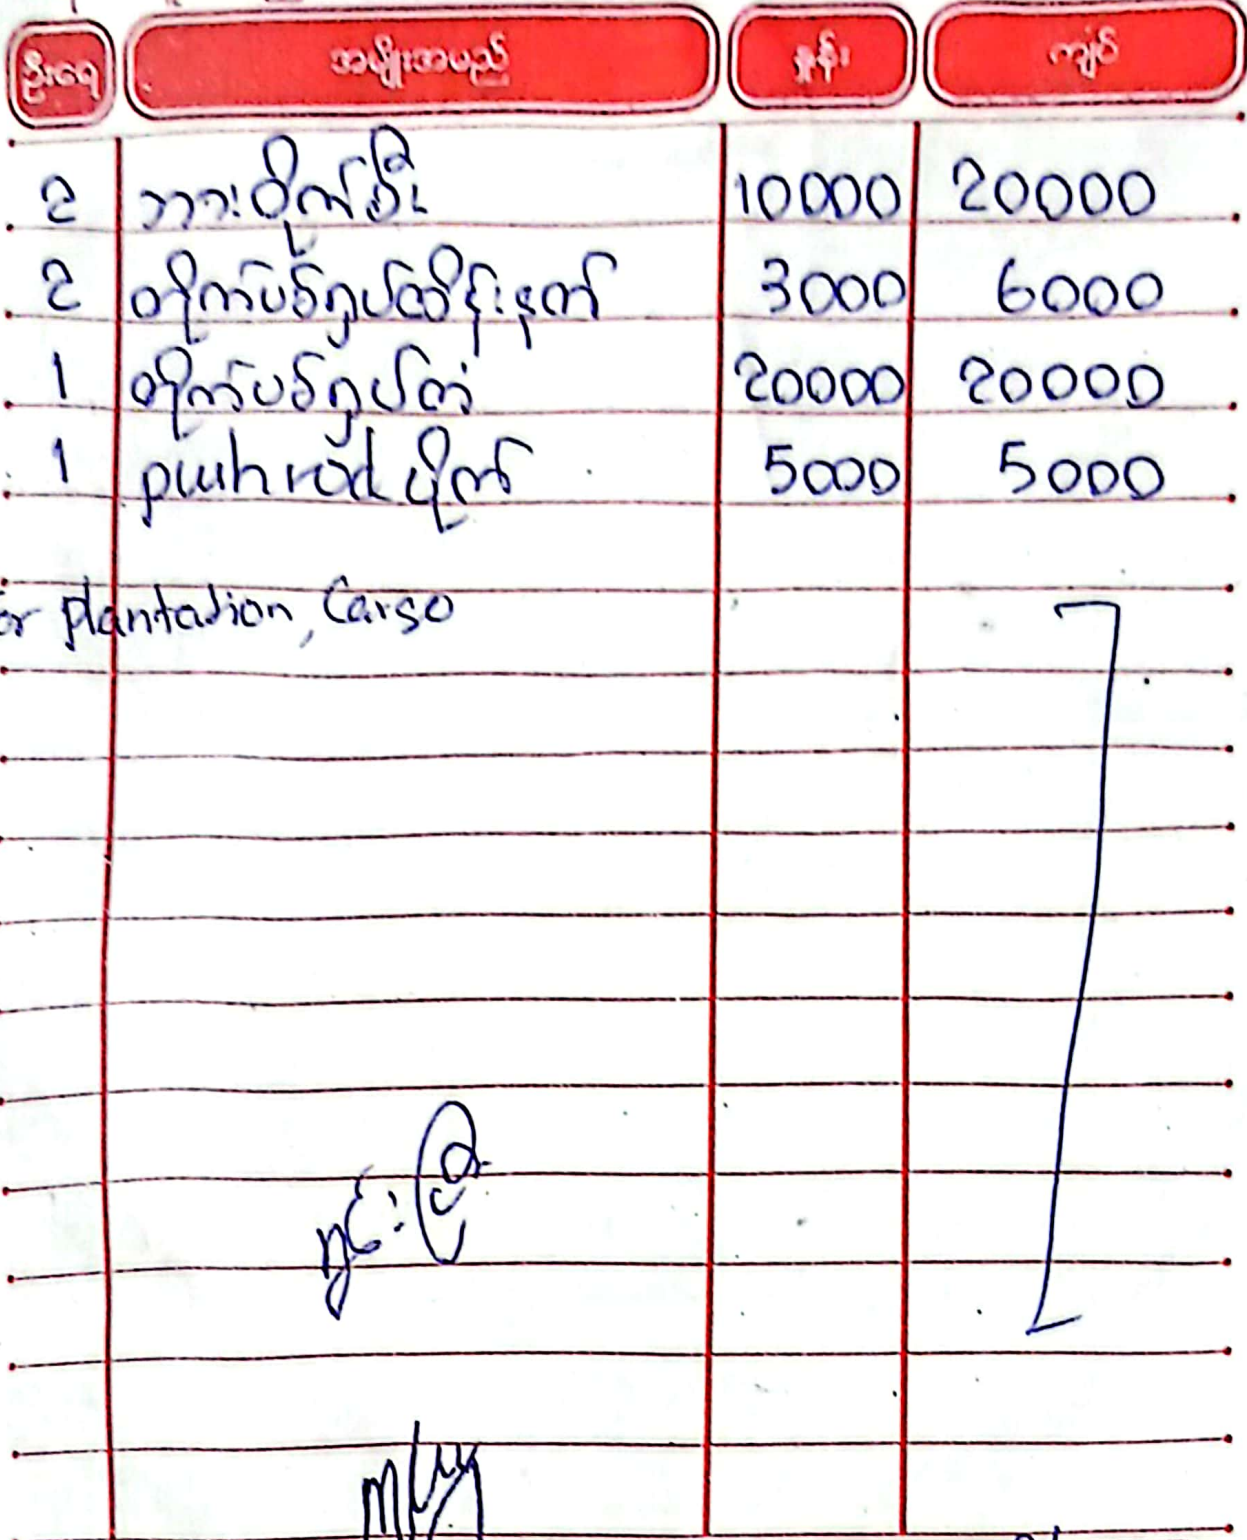 ဦးရေ အမျိုးအမည် နှုန်း ကျပ်
2 ဘားဝိုက်စီး 10000 20000
2 တိုက်ပစ်ရှပ်ထိန်းနတ် 3000 6000
1 တိုက်ပစ်ရှပ်တံ 20000 20000
1 push rod ပိုက် 5000 5000
or plantation, Cargo
ရှင်းပြီး